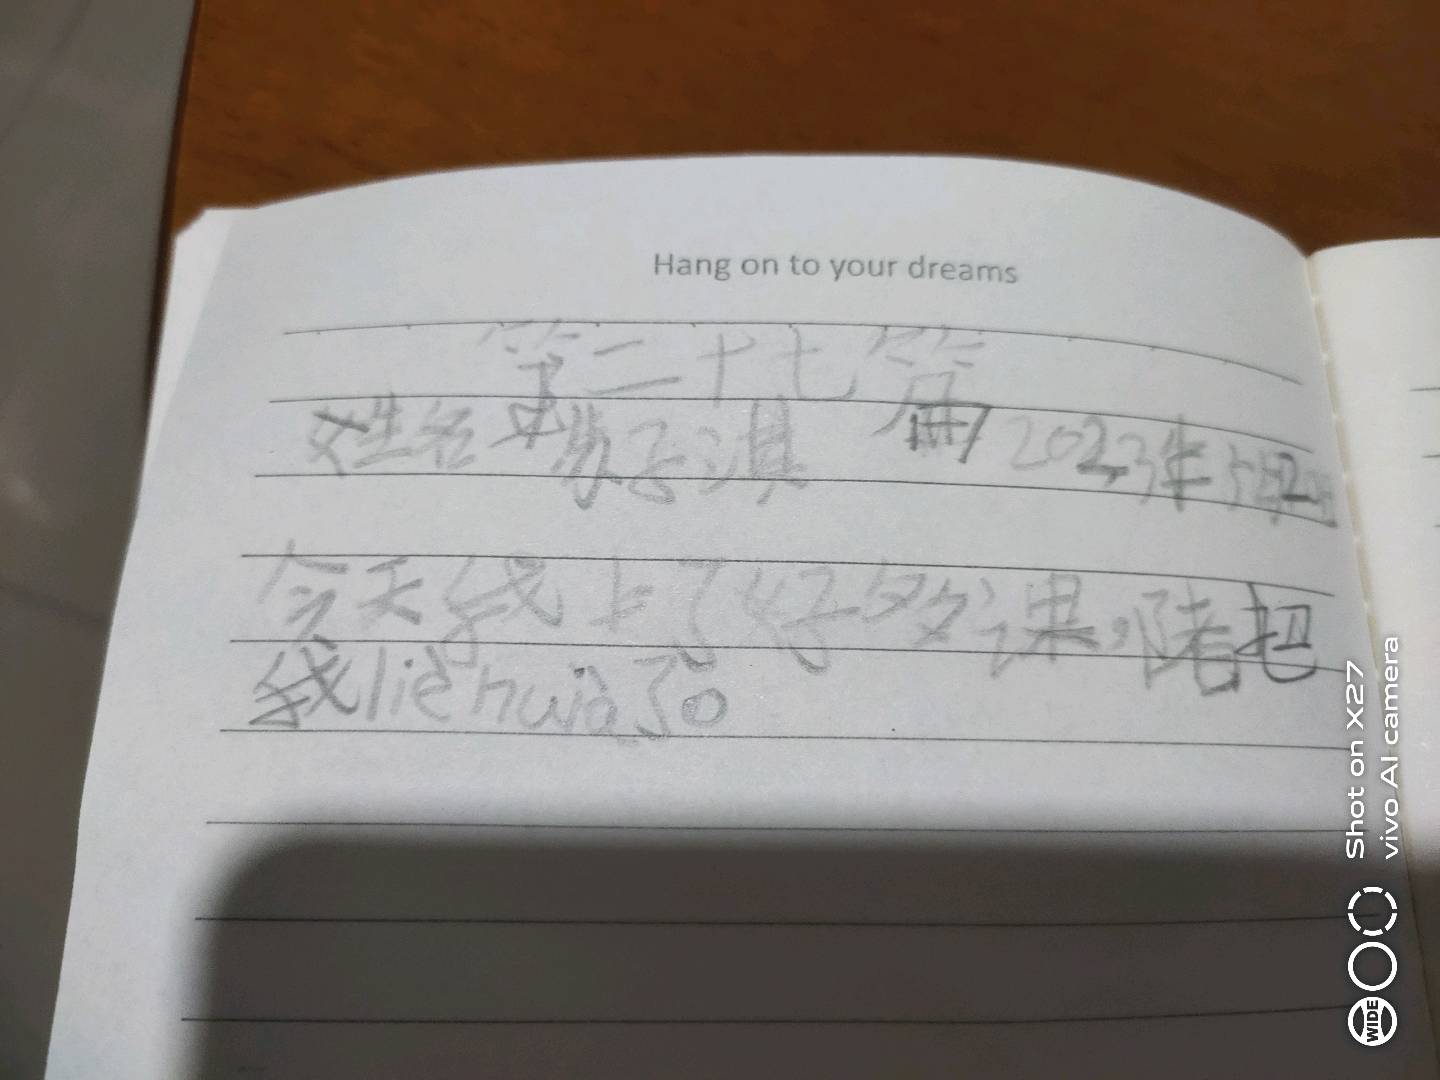 Hang on to your dreams
第二十七篇
姓名 苏子淇 2023年5月2
今天我上了好多课，陪把
我liè huà了。
Shot on X27
vivo AI camera
WIDE